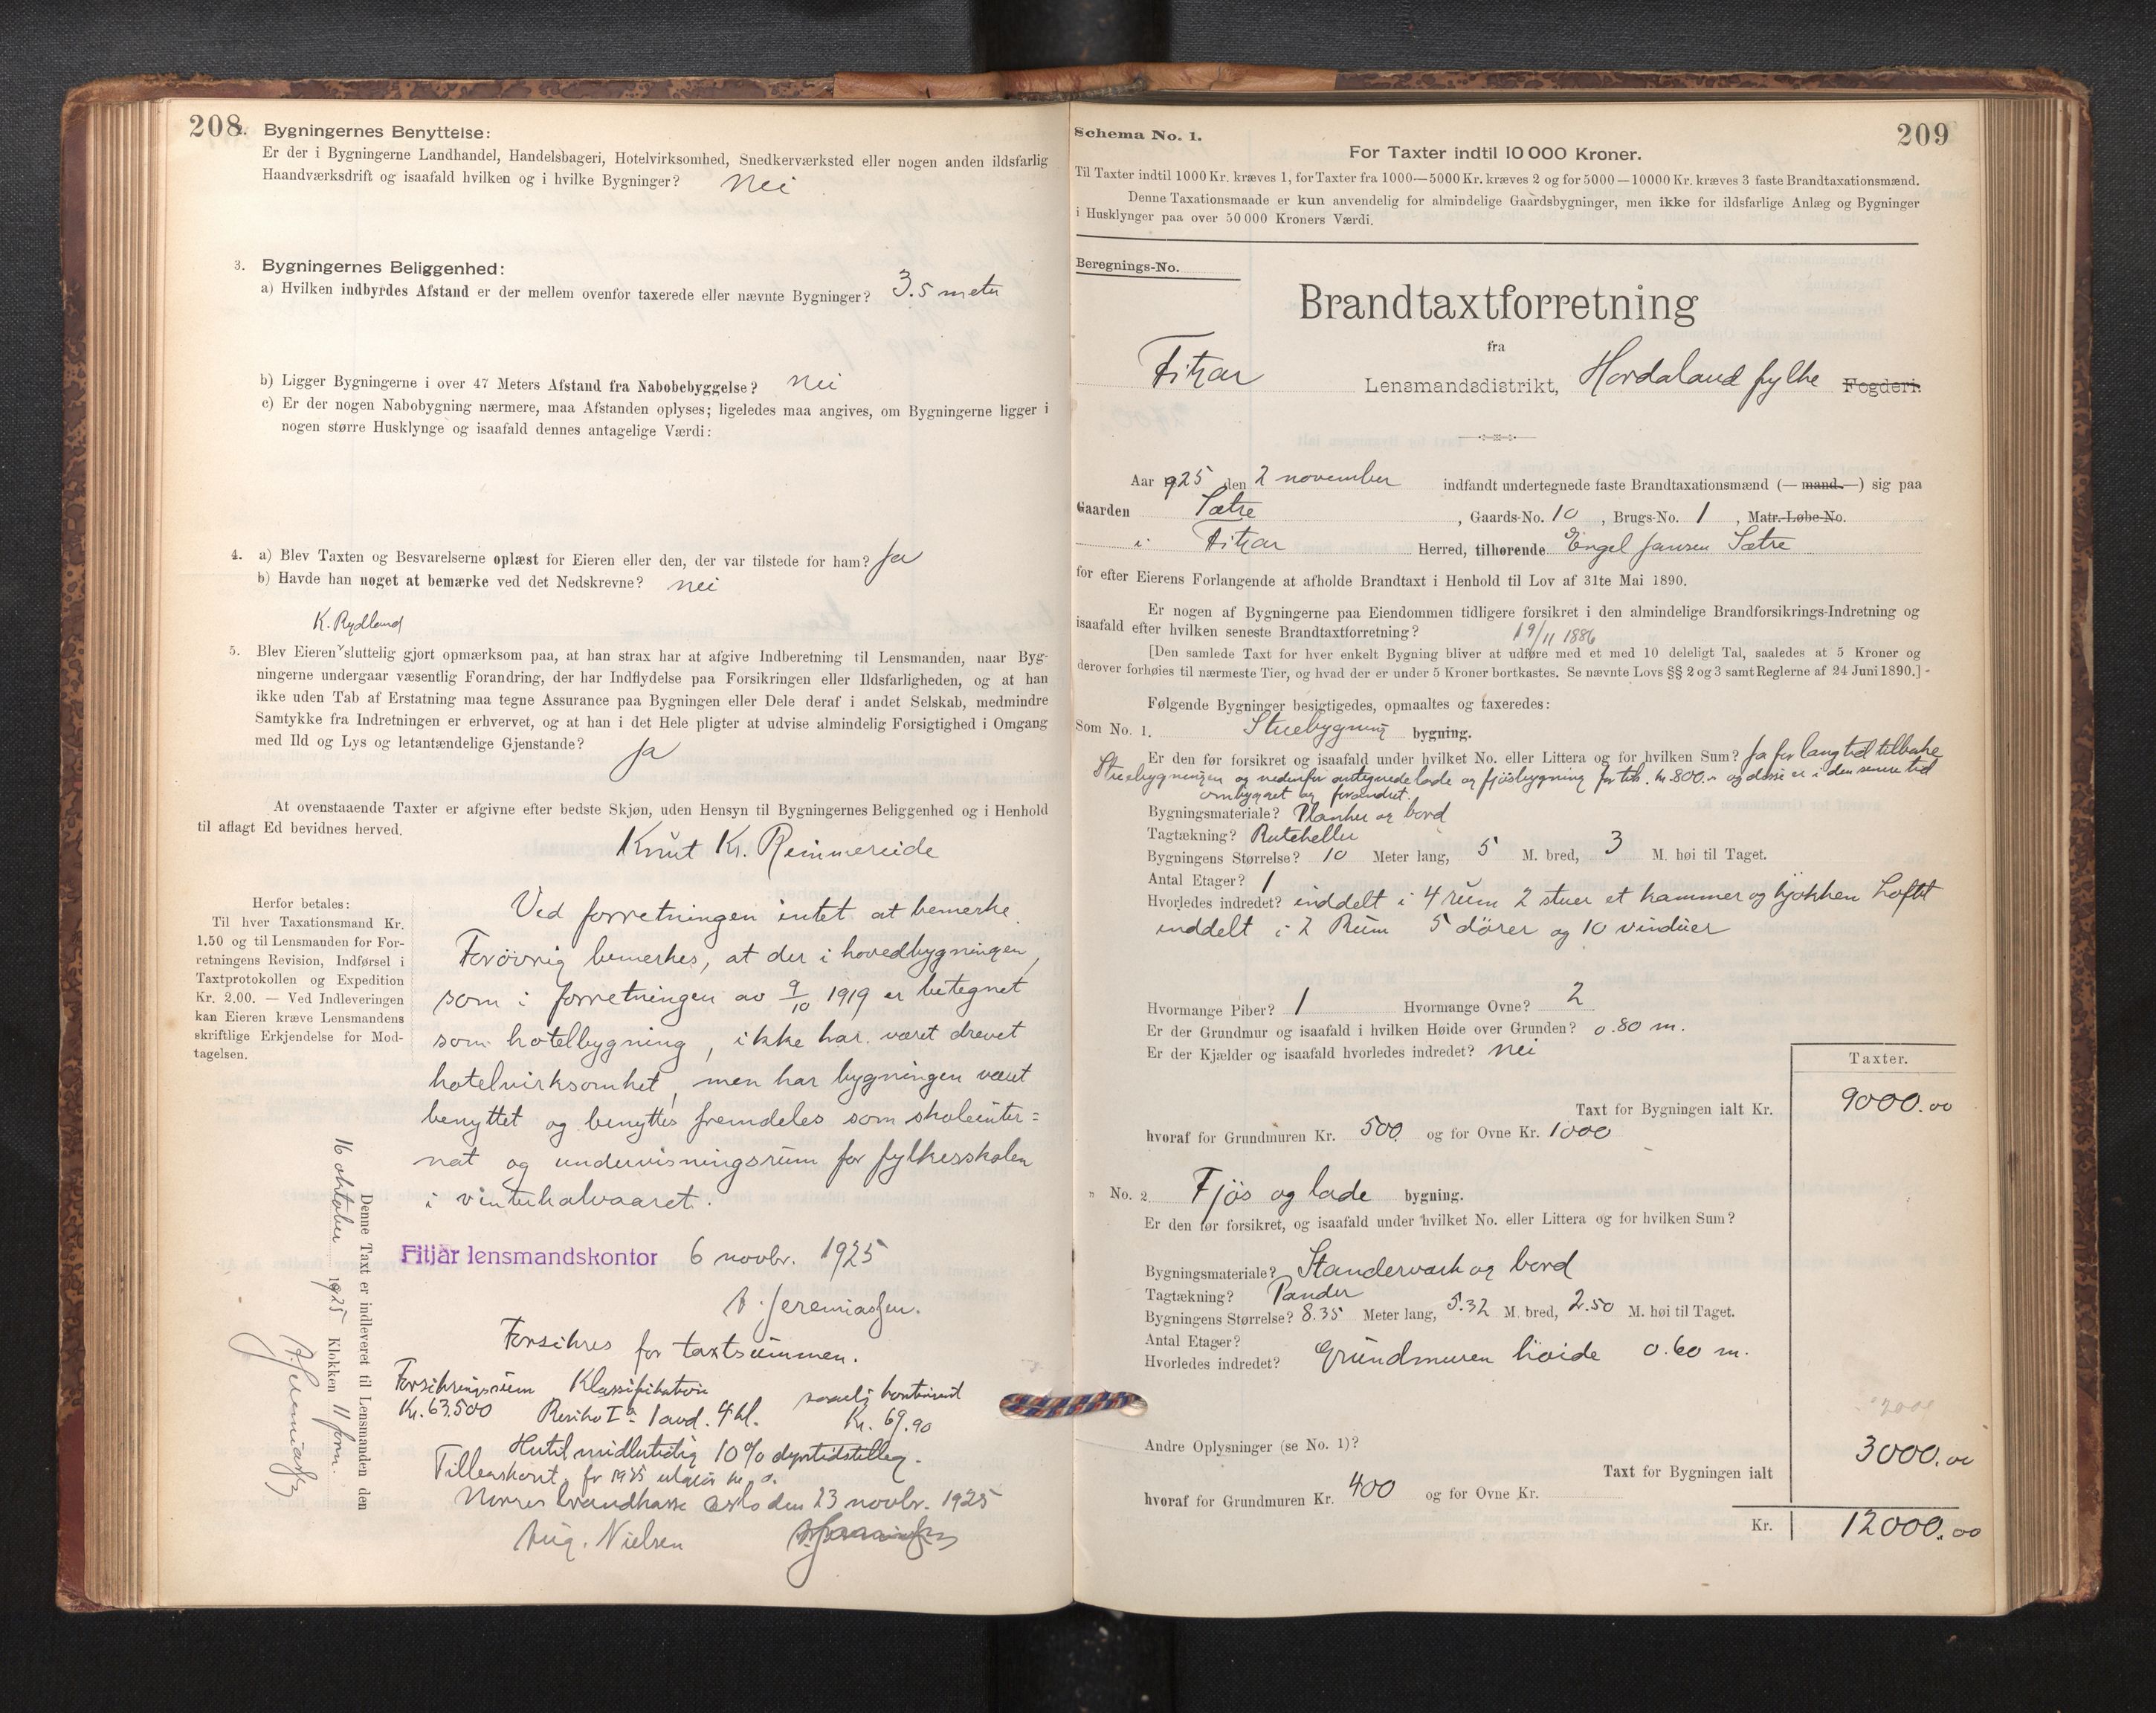 208
2. Bygningernes Benyttelse:
Er der i Bygningerne Landhandel, Handelsbageri, Hotelvirksomhed, Snedkerværksted eller nogen anden ildsfarlig
Haandværksdrift og isaafald hvilken og i hvilke Bygninger? Nei
3. Bygningernes Beliggenhed:
a) Hvilken indbyrdes Afstand er der mellem ovenfor taxerede eller nævnte Bygninger? 3.5 meter
b) Ligger Bygningerne i over 47 Meters Afstand fra Nabobebyggelse? nei
c) Er der nogen Nabobygning nærmere, maa Afstanden oplyses; ligeledes maa angives, om Bygningerne ligger i
nogen større Husklynge og isaafald dennes antagelige Værdi:
4. a) Blev Taxten og Besvarelserne oplæst for Eieren eller den, der var tilstede for ham? Ja
b) Havde han noget at bemærke ved det Nedskrevne? nei
K. Rydland
5. Blev Eieren sluttelig gjort opmærksom paa, at han strax har at afgive Indberetning til Lensmanden, naar Byg-
ningerne undergaar væsentlig Forandring, der har Indflydelse paa Forsikringen eller Ildsfarligheden, og at han
ikke uden Tab af Erstatning maa tegne Assurance paa Bygningen eller Dele deraf i andet Selskab, medmindre
Samtykke fra Indretningen er erhvervet, og at han i det Hele pligter at udvise almindelig Forsigtighed i Omgang
med Ild og Lys og letantændelige Gjenstande? Ja
At ovenstaaende Taxter er afgivne efter bedste Skjøn, uden Hensyn til Bygningernes Beliggenhed og i Henhold
til aflagt Ed bevidnes herved.
Knut Kr. Reimmereide
Herfor betales:
Til hver Taxationsmand Kr.
1.50 og til Lensmanden for For-
retningens Revision, Indførsel i
Taxtprotokollen og Expedition
Kr. 2.00. — Ved Indleveringen
kan Eieren kræve Lensmandens
skriftlige Erkjendelse for Mod-
tagelsen.
Ved forretningen intet at bemerke.
Forövrig bemerkes, at der i hovedbygningen,
som i forretningen av 9/10 1919 er betegnet
som hotelbygning, ikke har været drevet
hotelvirksomhet, men har bygningen været
benyttet og benyttes fremdeles som skoleinter=
nat og undervisningsrum for fylkesskolen
i vinterhalvaaret.
Fitjar lensmandskontor 6 novbr. 1925
A. Jeremiassen.
Denne Taxt er indleveret til Lensmanden den
16 oktober 1925 Klokken 11 form.
A. Jeremiassen
Forsikres for taxtsummen.
Forsikringssum Klassifikation aarlig kontingent
Kr. 63.500 Risiko Ia 1 avd. 4 kl. Kr. 69.90
Hertil midlertidig 10% dyrtidstillæg.
Tillægskont. for 1925 utgjør kr. 0.
Norges brandkasse Oslo den 23 novbr. 1925
Aug. Nielsen
209
Schema No. 1.
For Taxter indtil 10 000 Kroner.
Til Taxter indtil 1000 Kr. kræves 1, for Taxter fra 1000—5000 Kr. kræves 2 og for 5000—10000 Kr. kræves 3 faste Brandtaxationsmænd.
Denne Taxationsmaade er kun anvendelig for almindelige Gaardsbygninger, men ikke for ildsfarlige Anlæg og Bygninger
i Husklynger paa over 50 000 Kroners Værdi.
Beregnings-No.
Brandtaxtforretning
fra
Fitjar Lensmandsdistrikt, Hordaland fylke Fogderi.
Aar 1925 den 2 november indfandt undertegnede faste Brandtaxationsmænd (— mand.—) sig paa
Gaarden Sætre, Gaards-No. 10, Brugs-No. 1, Matr.-Løbe-No.
i Fitjar Herred, tilhørende Engel Jansen Sætre
for efter Eierens Forlangende at afholde Brandtaxt i Henhold til Lov af 31te Mai 1890.
Er nogen af Bygningerne paa Eiendommen tidligere forsikret i den almindelige Brandforsikrings-Indretning og
isaafald efter hvilken seneste Brandtaxtforretning? 19/11 1886
[Den samlede Taxt for hver enkelt Bygning bliver at udføre med et med 10 deleligt Tal, saaledes at 5 Kroner og
derover forhøies til nærmeste Tier, og hvad der er under 5 Kroner bortkastes. Se nævnte Lovs §§ 2 og 3 samt Reglerne af 24 Juni 1890.]
Følgende Bygninger besigtigedes, opmaaltes og taxeredes:
Som No. 1. Stuebygning bygning.
Er den før forsikret og isaafald under hvilket No. eller Littera og for hvilken Sum? Ja for lang tid tilbake
Stuebygningen og nedenfor antegnede lade og fjösbygning for tils. kr. 800.- og disse er i den senere tid
ombygget og forandret.
Bygningsmateriale? Planker og bord
Tagtækning? Ruteheller
Bygningens Størrelse? 10 Meter lang, 5 M. bred, 3 M. høi til Taget.
Antal Etager? 1
Hvorledes indredet? inddelt i 4 rum 2 stuer et kammer og kjökken Loftet
inddelt i 2 Rum 5 dörer og 10 vinduer
Hvormange Piber? 1 Hvormange Ovne? 2
Er der Grundmur og isaafald i hvilken Høide over Grunden? 0.80 m.
Er der Kjælder og isaafald hvorledes indredet? nei
Taxter.
Taxt for Bygningen ialt Kr. 9000.00
hvoraf for Grundmuren Kr. 500. og for Ovne Kr. 1000
" No. 2. Fjös og lade bygning.
Er den før forsikret, og isaafald under hvilket No. eller Littera og for hvilken Sum?
Bygningsmateriale? Standerverk og bord
Tagtækning? Pander
Bygningens Størrelse? 8.35 Meter lang, 5.32 M. bred, 2.50 M. høi til Taget.
Antal Etager?
Hvorledes indredet? Grundmuren höide 0.60 m.
Andre Oplysninger (se No. 1)?
Taxt for Bygningen ialt 3000.00
hvoraf for Grundmuren Kr. 400 og for Ovne Kr.
Kr. 12000.00